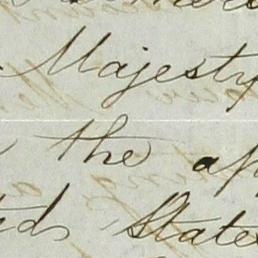 Majesty
the ap
ted State